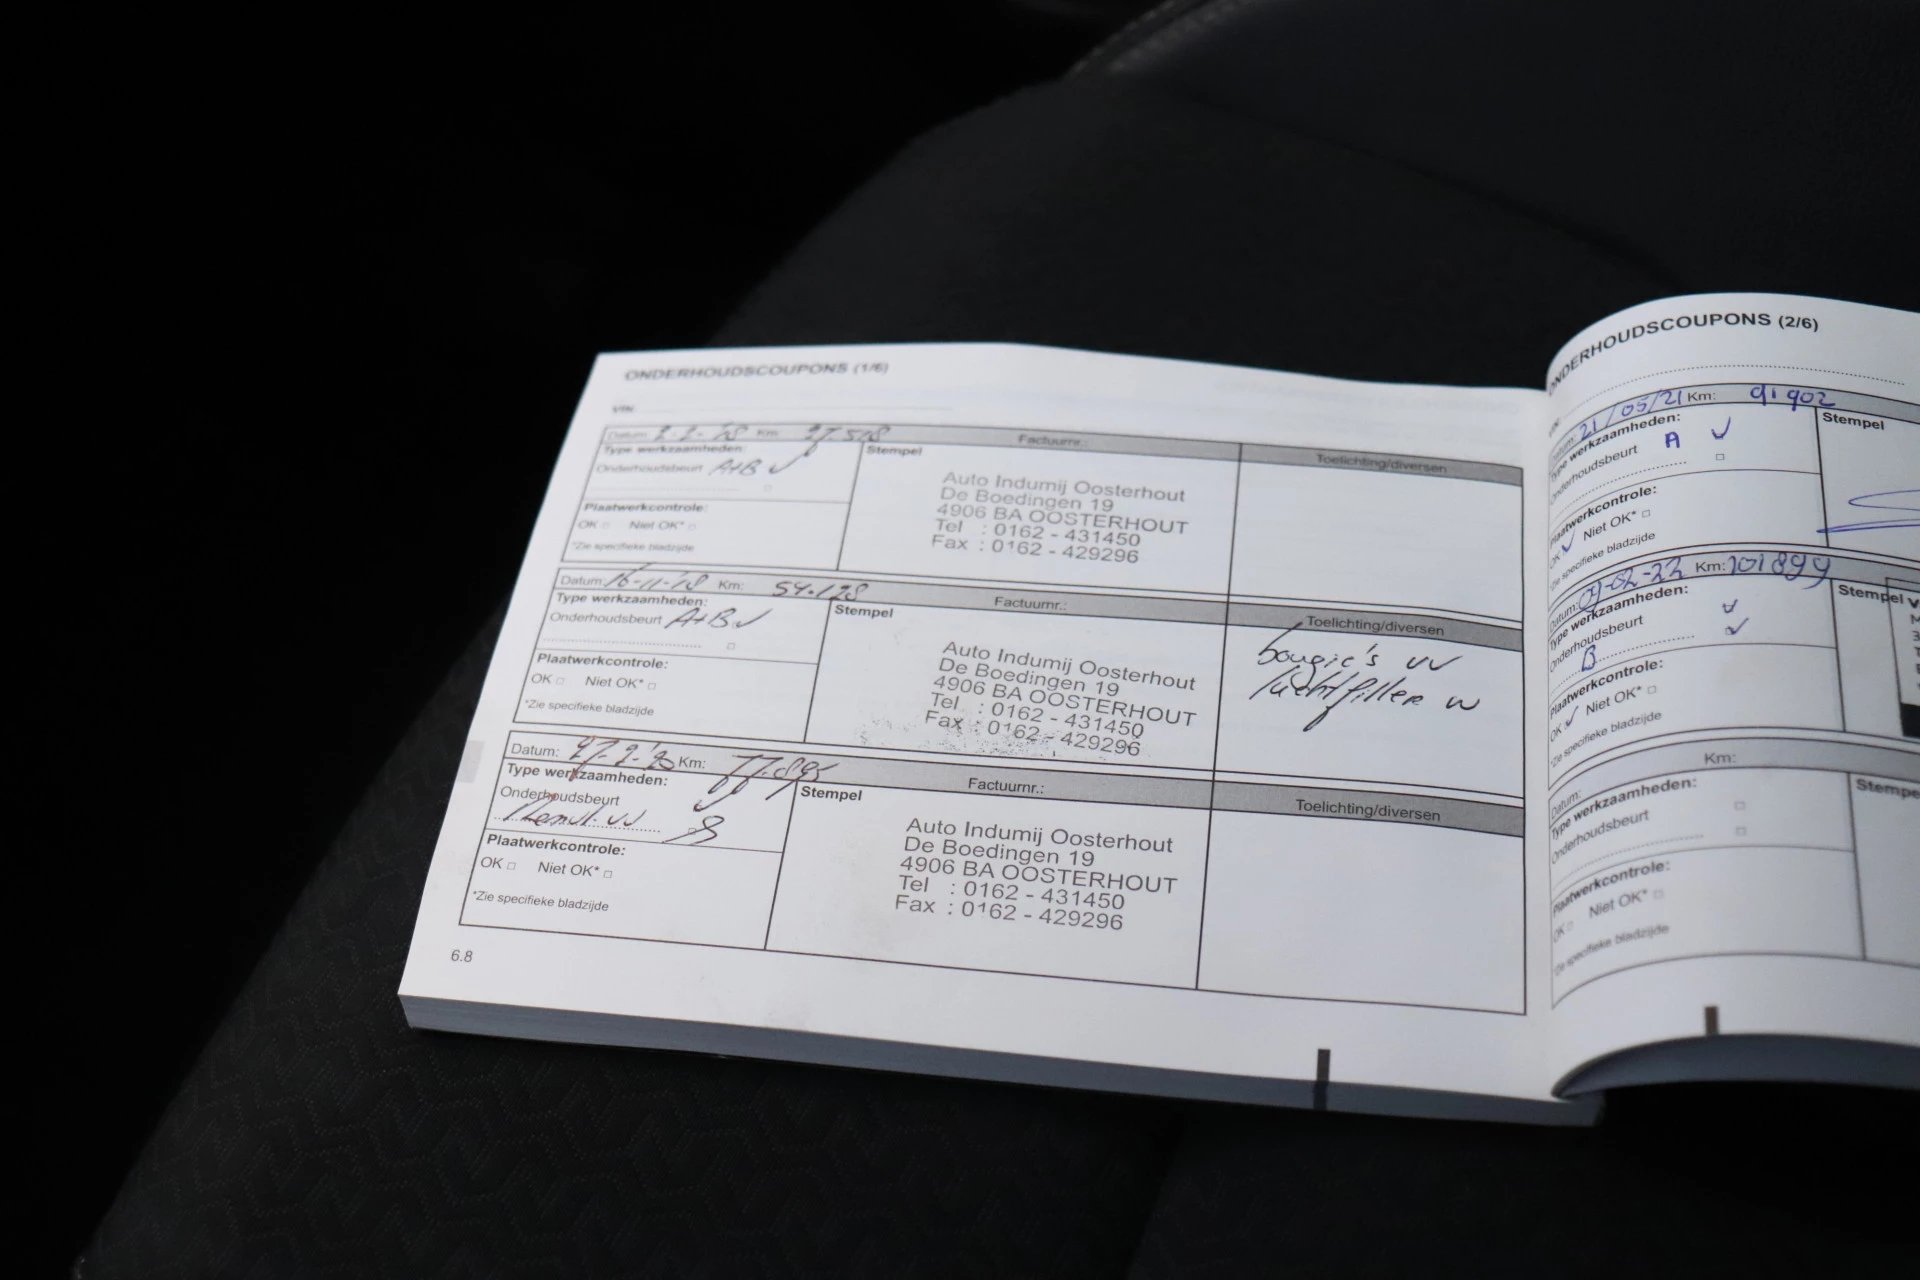 ONDERHOUDSCOUPONS (1/6)
VIN
Datum: 2-2-'18 Km: 27.518 Factuurnr.:
Type werkzaamheden: Stempel Toelichting/diversen
Onderhoudsbeurt A+B ✓
Auto Indumij Oosterhout
De Boedingen 19
4906 BA OOSTERHOUT
Tel : 0162 - 431450
Fax : 0162 - 429296
Plaatwerkcontrole:
OK □ Niet OK* □
*Zie specifieke bladzijde
Datum: 16-11-'18 Km: 54.128 Factuurnr.:
Type werkzaamheden: Stempel Toelichting/diversen
Onderhoudsbeurt A+B ✓
Auto Indumij Oosterhout
De Boedingen 19
4906 BA OOSTERHOUT
Tel : 0162 - 431450
Fax : 0162 - 429296
bougie's vv
luchtfilter vv
Plaatwerkcontrole:
OK □ Niet OK* □
*Zie specifieke bladzijde
Datum: Km: 77.895 Factuurnr.:
Type werkzaamheden: Stempel Toelichting/diversen
Onderhoudsbeurt ✓
vv
Auto Indumij Oosterhout
De Boedingen 19
4906 BA OOSTERHOUT
Tel : 0162 - 431450
Fax : 0162 - 429296
Plaatwerkcontrole:
OK □ Niet OK* □
*Zie specifieke bladzijde
6.8
ONDERHOUDSCOUPONS (2/6)
Datum: 21/05/21 Km: 91902
Type werkzaamheden: Stempel
Onderhoudsbeurt A ✓
Plaatwerkcontrole:
OK ✓ Niet OK* □
*Zie specifieke bladzijde
Datum: 09-02-22 Km: 101899
Type werkzaamheden: Stempel
Onderhoudsbeurt ✓
B ✓
Plaatwerkcontrole:
OK ✓ Niet OK* □
*Zie specifieke bladzijde
Datum: Km:
Type werkzaamheden: Stempe
Onderhoudsbeurt □
Plaatwerkcontrole:
OK □ Niet OK* □
*Zie specifieke bladzijde